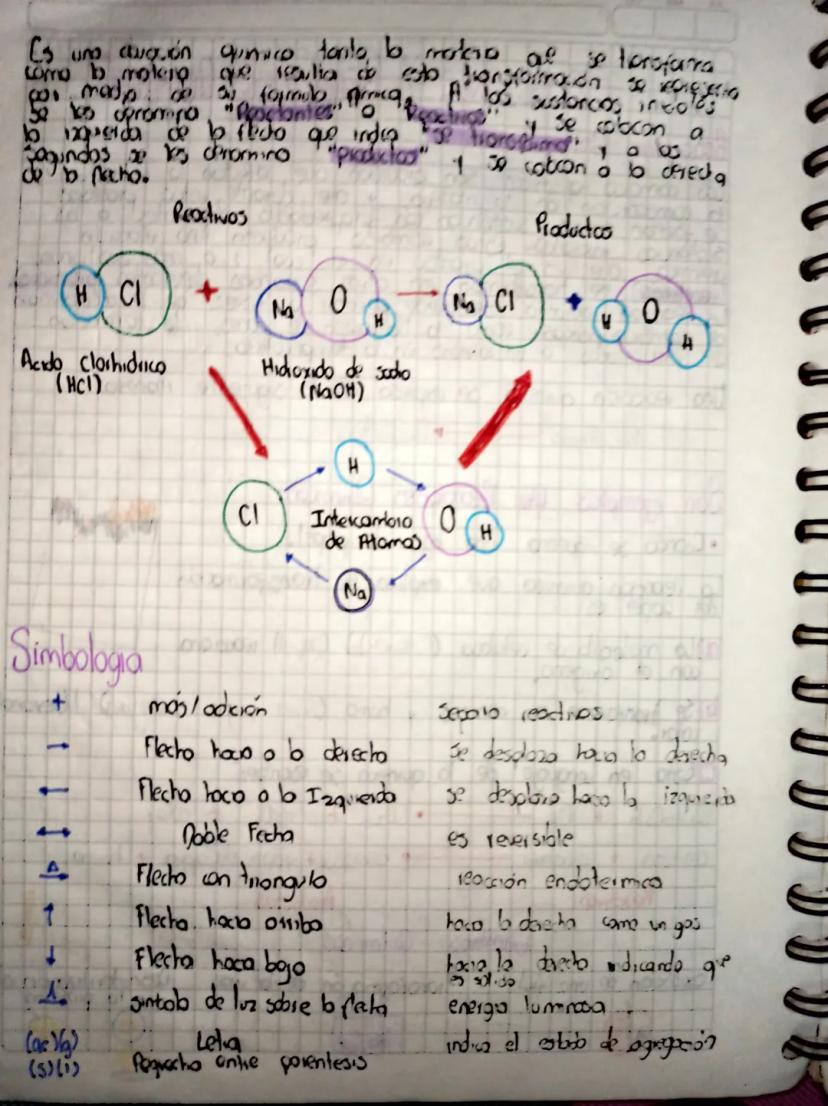 Es una ecuación química tanto, la materia que se transforma
como la materia que resulta de esta transformación se
por medio de su formula química, A las sustancias iniciales
se les denomina "Reactantes" o "Reactivos" y se colocan a
la izquierda de la flecha que indica "se transforma", y a las
segundas se les denomina "productos" y se colocan a la derecha
de la flecha.
Reactivos
Productos
H Cl + Na O H → Na Cl + H O H
Acido Clorhidrico
(HCl)
Hidroxido de sodio
(NaOH)
H
Cl
Intercambio
de Atomos
O H
Na
Simbología
+ más/adición separa reactivos
→ Flecha hacia a la derecha se desplaza hacia la derecha
← Flecha haca a la Izquierda se desplaza haca la izquierda
↔ Doble Fecha es reversible
Δ→ Flecha con triangulo reacción endotermica
↑ Flecha hacia arriba haca la derecha como un gas
↓ Flecha haca bajo hacia la derecha indicando que
es solido
de luz sobre la flecha energia luminosa
(ac)(g) Letra indica el estado de agregación
(s)(l) entre parentesis